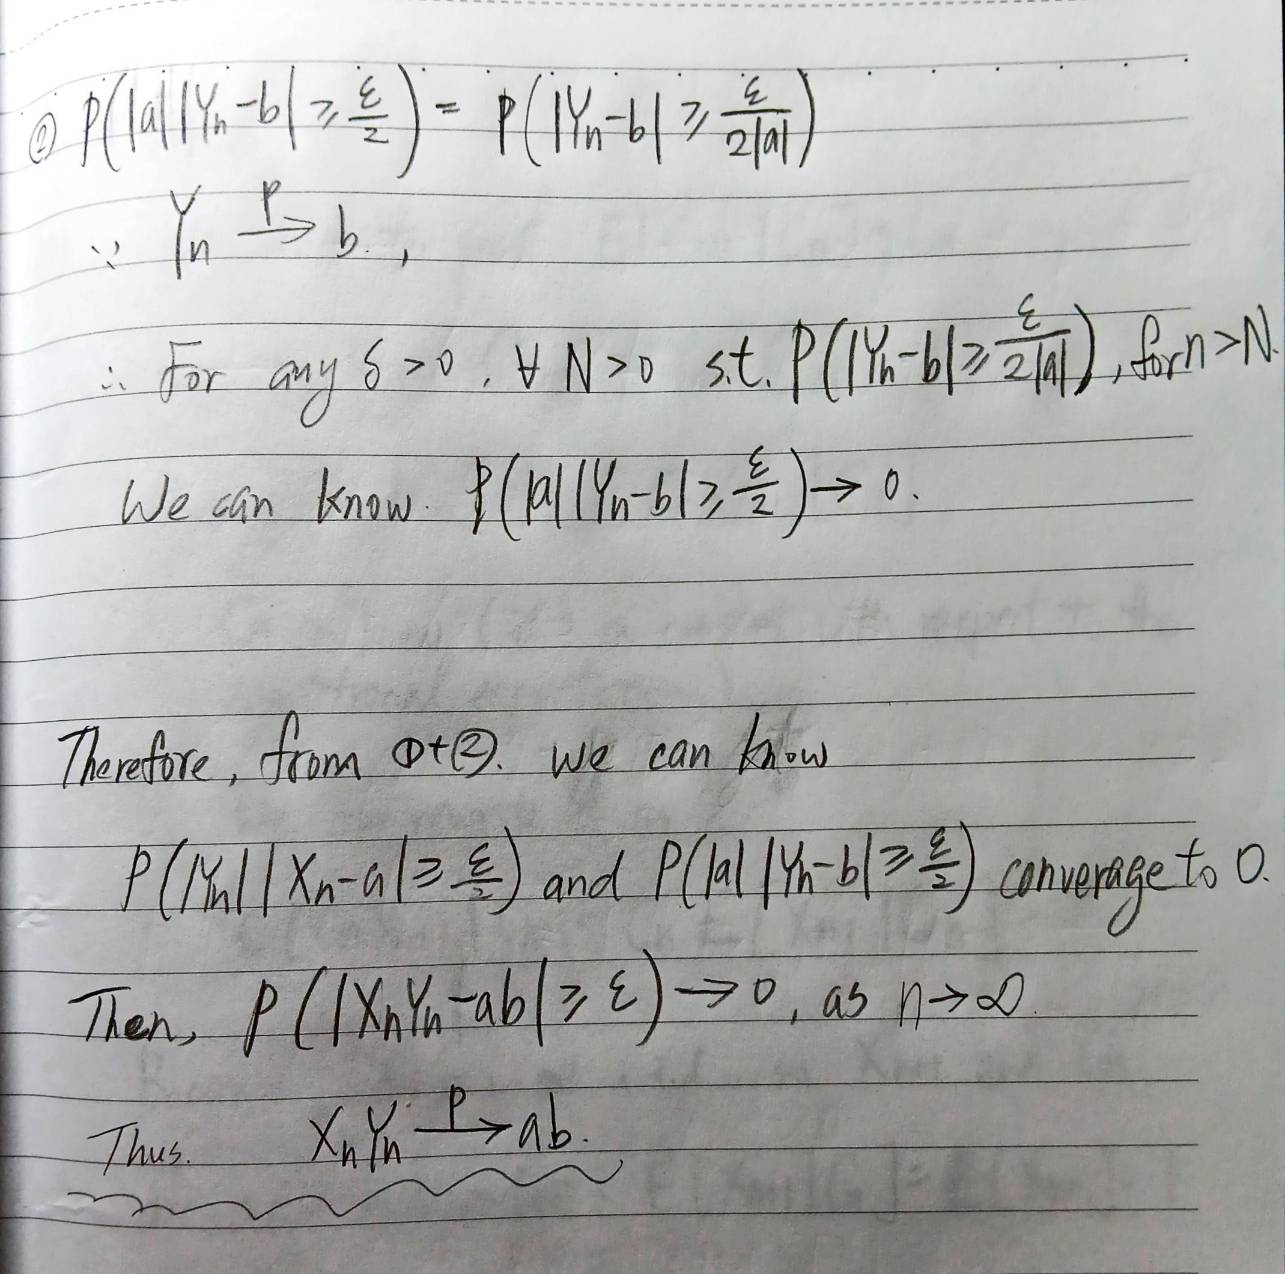 ② P(|a||Yₙ-b| ≥ ε/2) = P(|Yₙ-b| ≥ ε/(2|a|))
∵ Yₙ →ᴾ b.,
∴ For any δ>0, ∀ N>0 s.t. P(|Yₙ-b| ≥ ε/(2|a|)), for n>N.
We can know. P(|a||Yₙ-b| ≥ ε/2) → 0.
Therefore, from ①+②. we can know
P(|Yₙ||Xₙ-a| ≥ ε/2) and P(|a||Yₙ-b| ≥ ε/2) converage to 0.
Then, P(|XₙYₙ-ab| ≥ ε) → 0, as n→∞.
Thus. XₙYₙ →ᴾ ab.